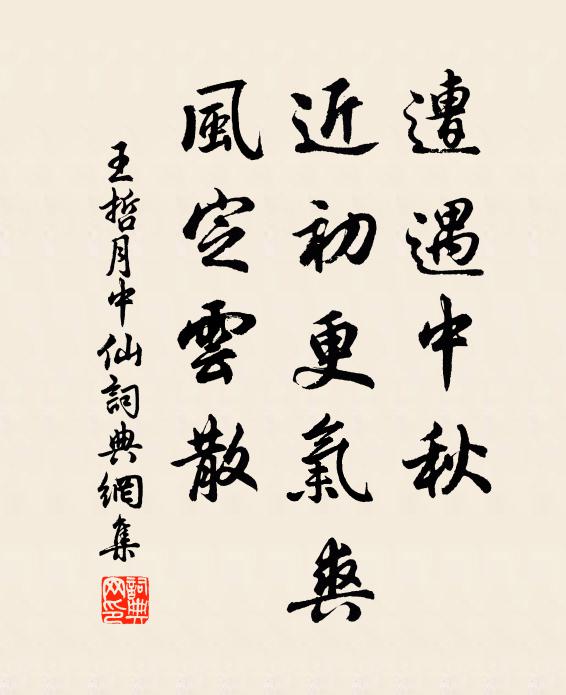 遭遇中秋
近初更氣爽
風定雲散
王哲月中仙詞典網集
詞典網印